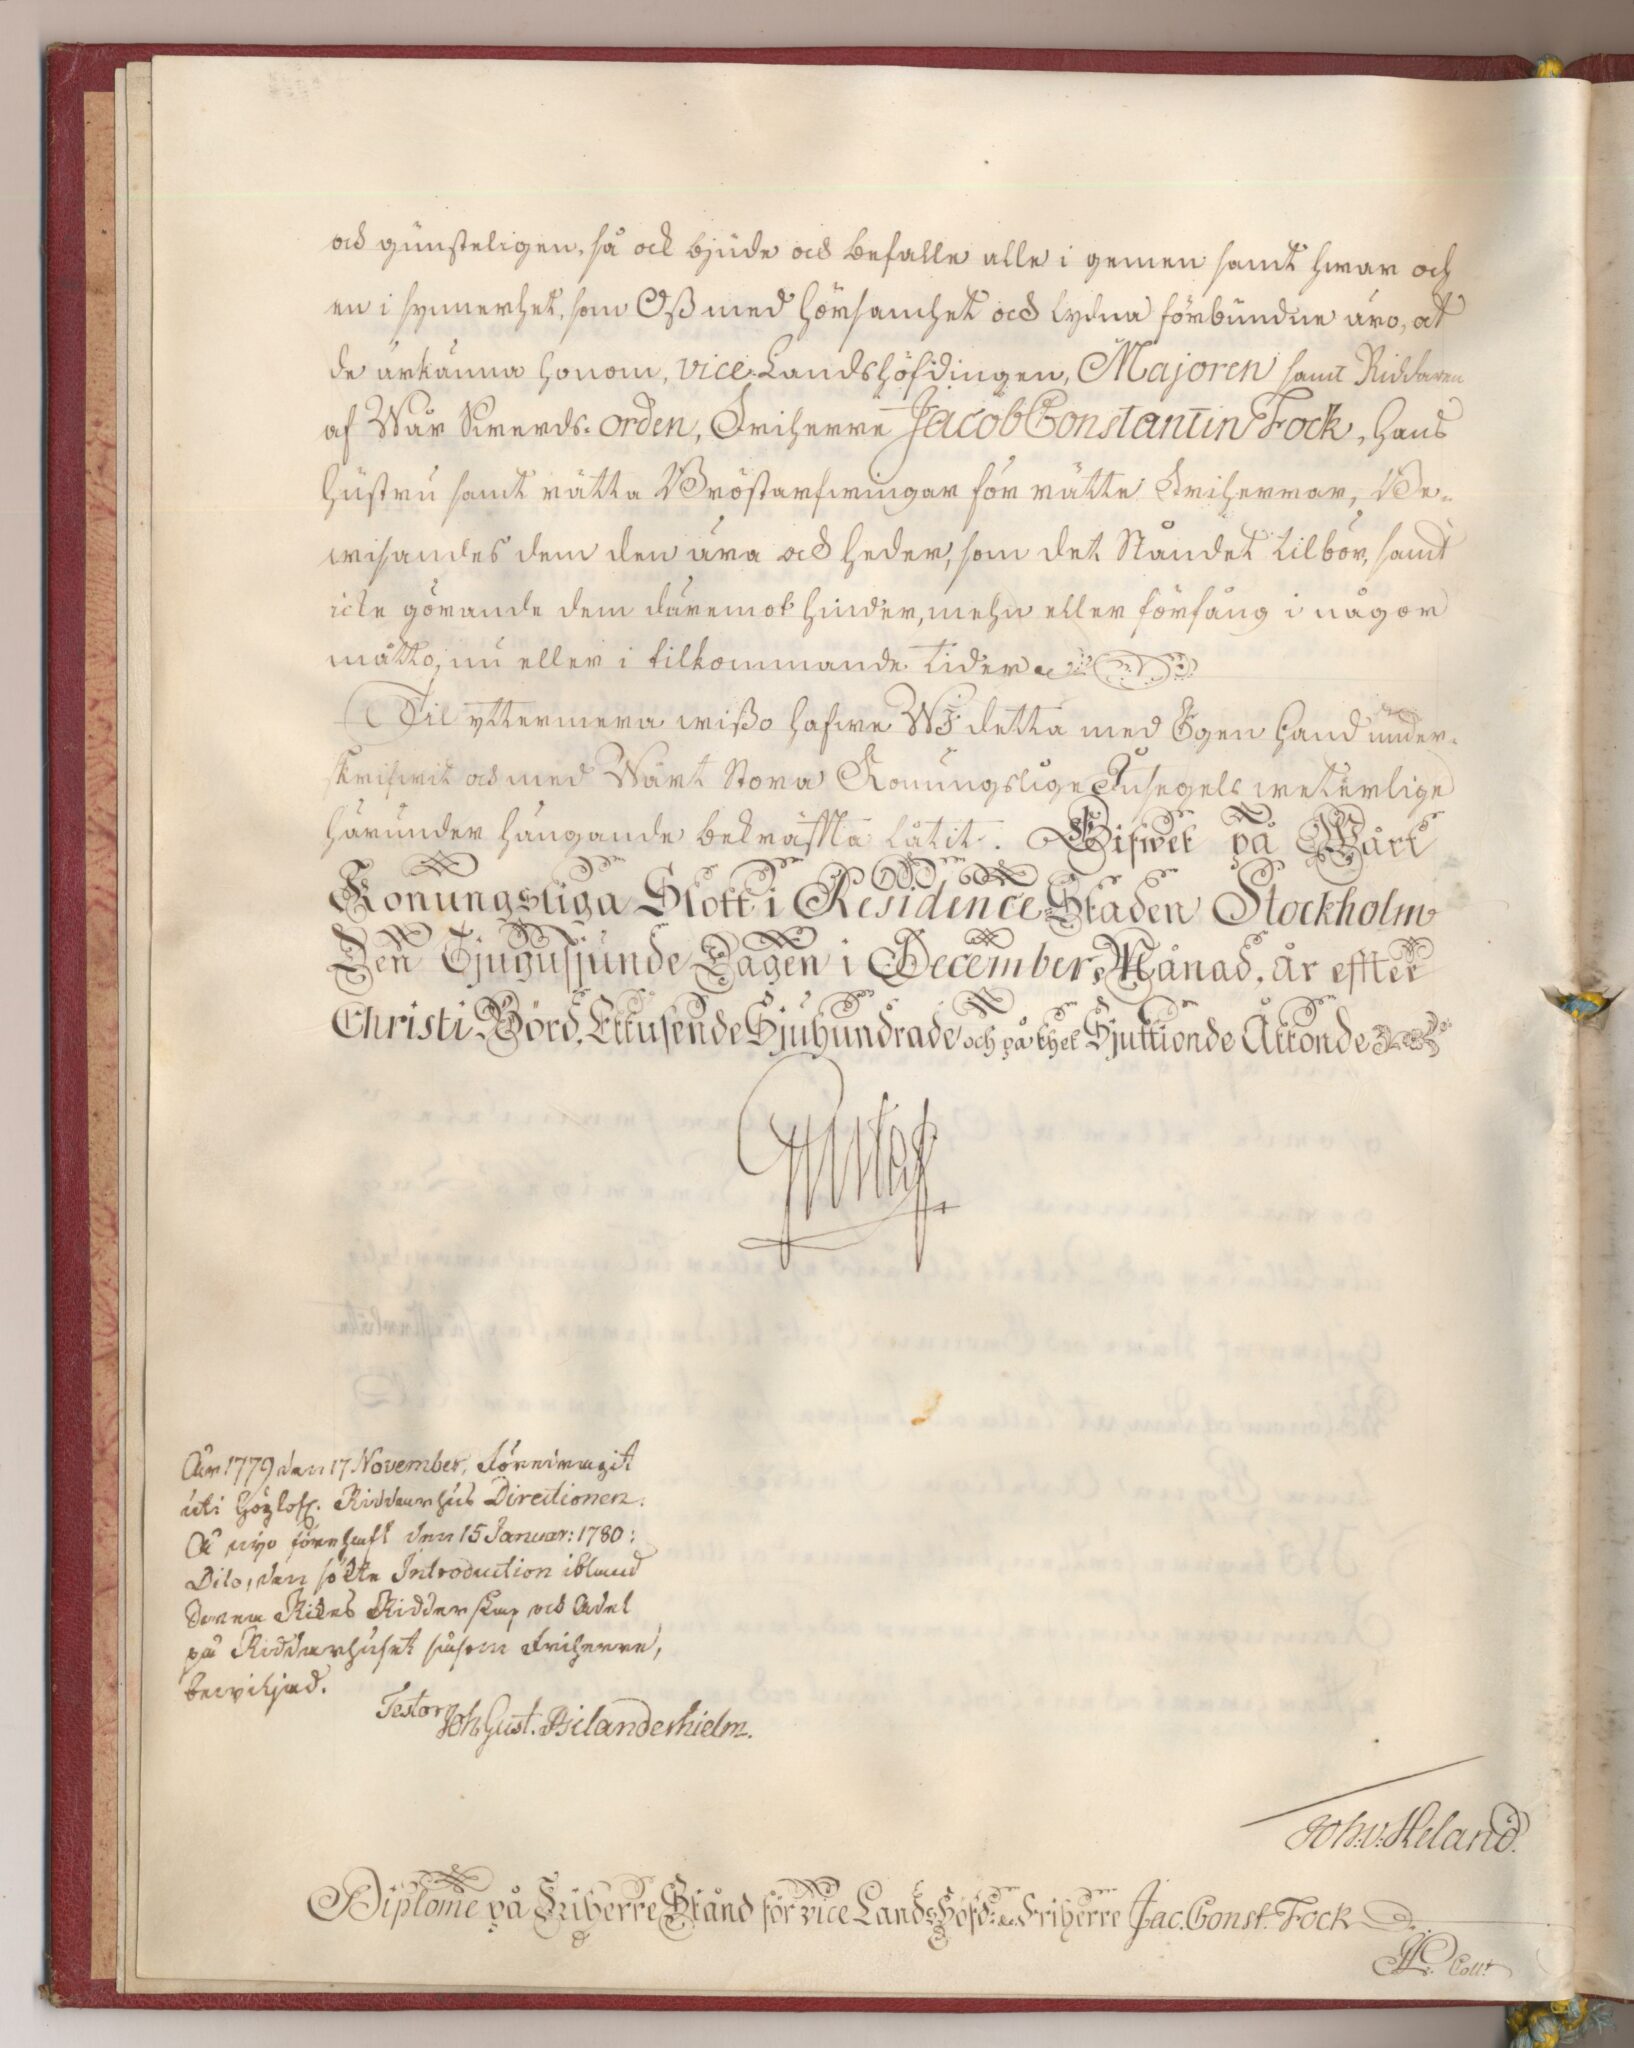 och günsteligen, så ock bjude och befalle alle i gemen samt hwar och
en i synnerhet, som Oß med hörsamhet och lydna förbundne äro, at
de ärkänna honom, vice Landshöfdingen, Majoren samt Riddaren
af Wår Swerds-orden, Friherre Jacob Constantin Fock, hans
hustru samt rätta Bröstarfwingar för rätte Friherrar, Be-
wisandes dem den ära och heder, som det Ståndet tilbör, samt
icke görande dem däremot hinder, mehn eller förfång i någor
måtto, nu eller i tilkommande tider
Til yttermera wißo hafwe Wi detta med Egen hand under-
skrifwit och med Wårt Stora Konungslige Insegels weterlige
härunder hängande bekräffta låtit. Gifwet på Wårt
Konungsliga Slott i Residence Staden Stockholm
Den Tjugusjunde Dagen i December Månad, år effter
Christi Börd, Ettusende Sjuhundrade och på thet Sjuttionde Åttonde
Gustaf
År 1779 den 17 November, Föredragit
uti Höglofl. Riddarhus Directionen.
Å nyo förehaft den 15 Januar: 1780:
Dito, den sökte Introduction ibland
Swea Rikes Ridderskap och Adel
på Riddarhuset såsom Friherre,
bewiljad.
Testor
Joh. Gust. Psilanderhielm.
Joh. v. Heland.
Diplome på Friherre Stånd för vice Lands Höfd: Friherre Jac. Const. Fock
Coll: